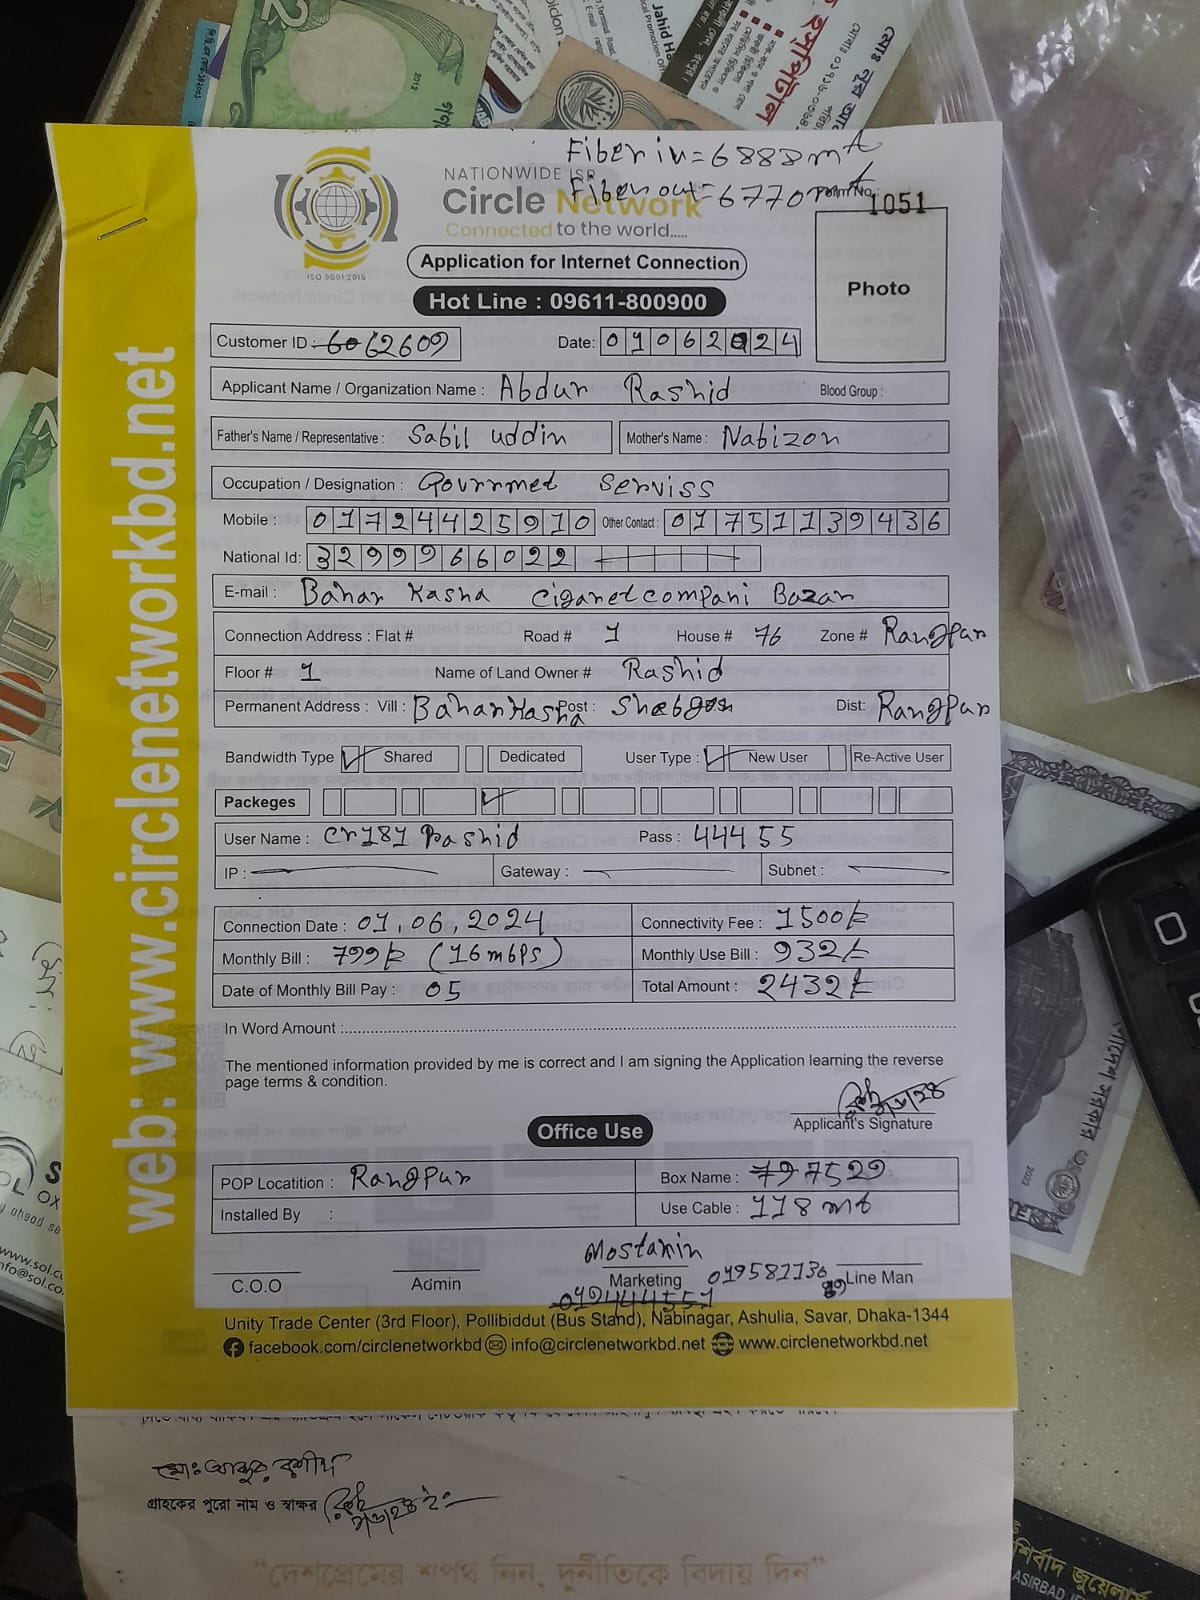 2012
Jahid
Fiber in = 6888 mt
Fiber out = 6770 mt
NATIONWIDE ISP
Form No.:
1051
Circle Network
Connected to the world.....
ISO 9001:2015
Application for Internet Connection
Photo
Hot Line : 09611-800900
Customer ID : 6062609
Date: 01062024
Applicant Name / Organization Name : Abdur Rashid Blood Group :
Father's Name / Representative : Sabil uddin Mother's Name : Nabizon
Occupation / Designation : Govrrmet Serviss
Mobile : 01724425910 Other Contact : 01751139436
National Id: 3299966022
E-mail : Bahar Kasna Cigaretcompani Bazar
Connection Address : Flat # Road # 1 House # 76 Zone # Rangpur
Floor # 1 Name of Land Owner # Rashid
Permanent Address : Vill : Baharkasna Post : Dist: Rangpur
Bandwidth Type Shared Dedicated User Type : New User Re-Active User
Packeges
User Name : Cr181 Rashid Pass : 44455
IP : Gateway : Subnet :
Connection Date : 01.06.2024 Connectivity Fee : 1500/=
Monthly Bill : 799/= (16mbps) Monthly Use Bill : 932/=
Date of Monthly Bill Pay : 05 Total Amount : 2432/=
In Word Amount :
The mentioned information provided by me is correct and I am signing the Application learning the reverse
page terms & condition.
Applicant's Signature
Office Use
POP Locatition : Rangpur Box Name : 797529
Installed By : Use Cable : 118 mt
Mostakin
C.O.O Admin Marketing Line Man
Unity Trade Center (3rd Floor), Pollibiddut (Bus Stand), Nabinagar, Ashulia, Savar, Dhaka-1344
facebook.com/circlenetworkbd info@circlenetworkbd.net www.circlenetworkbd.net
web: www.circlenetworkbd.net
মোঃ আব্দুর রশীদ
গ্রাহকের পুরো নাম ও স্বাক্ষর
“দেশপ্রেমের শপথ নিন, দুর্নীতিকে বিদায় দিন”
2022